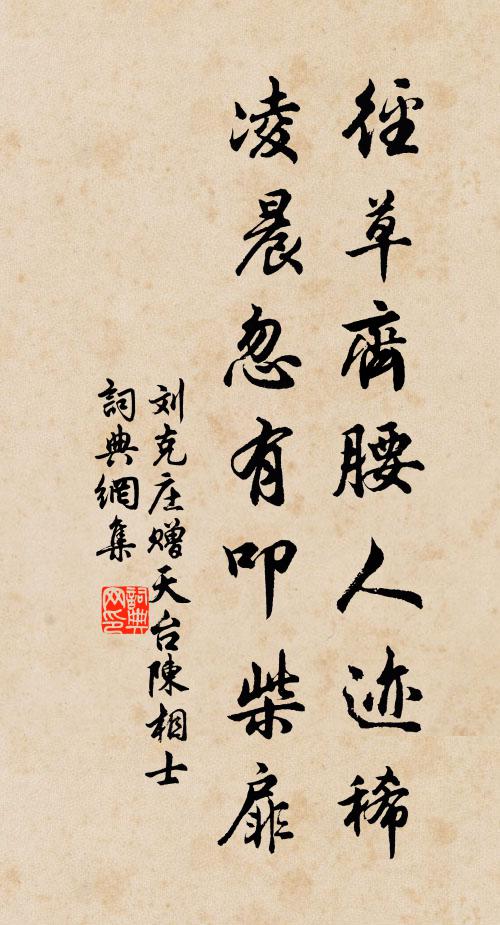 徑草齊腰人迹稀
凌晨忽有叩柴扉
刘克庄赠天台陳相士
詞典網集
詞典网印